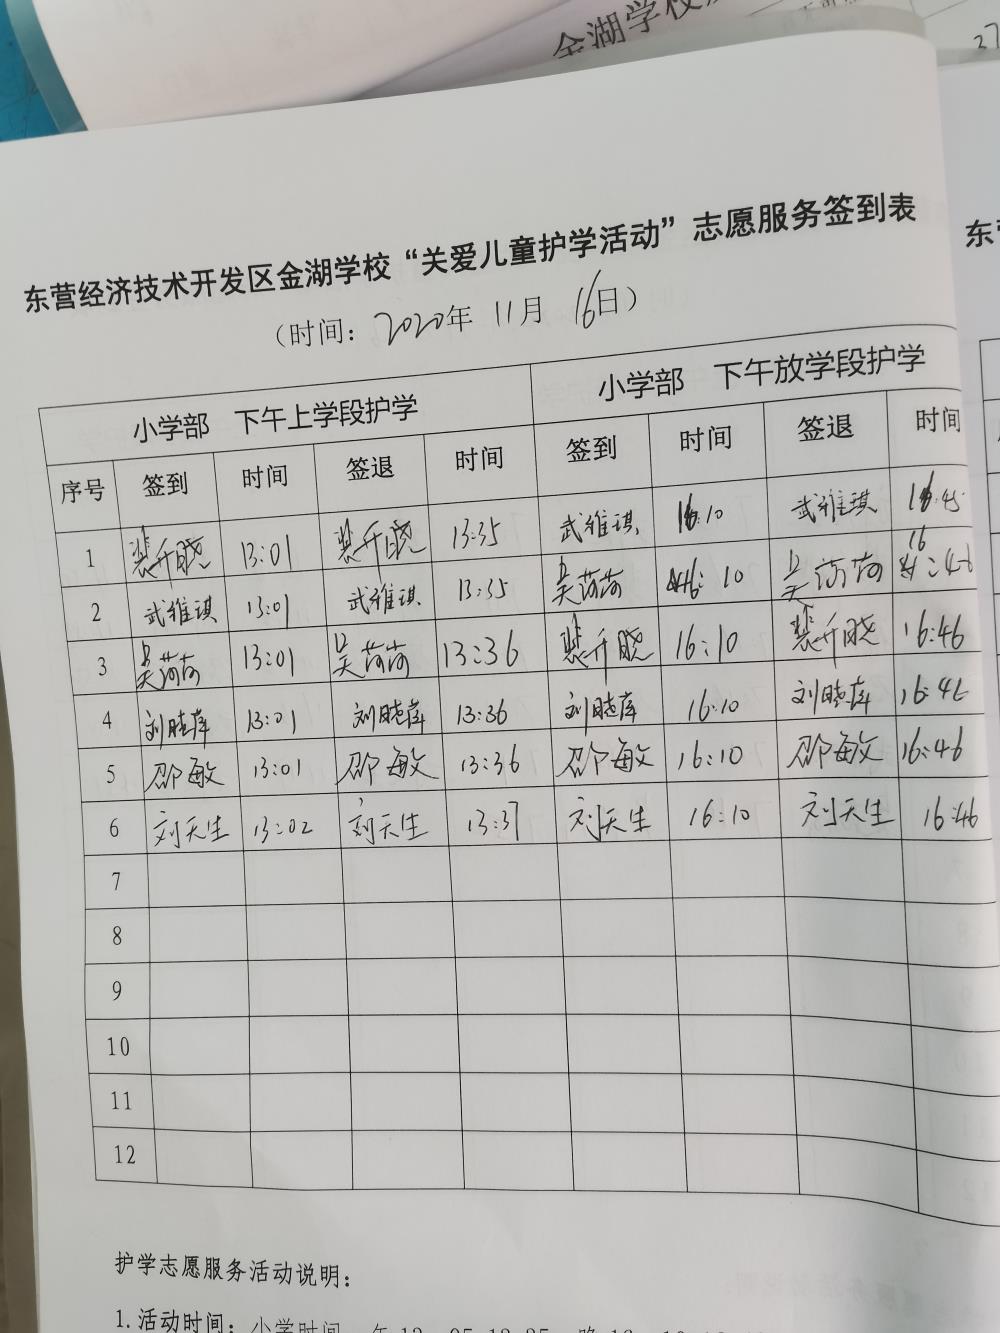 金湖学校
37
东营经济技术开发区金湖学校“关爱儿童护学活动”志愿服务签到表
东营
（时间：2020年 11月 16日）
小学部 下午上学段护学 小学部 下午放学段护学
序号 签到 时间 签退 时间 签到 时间 签退 时间
1 裴升晓 13:01 裴升晓 13:35 武维琪 16:10 武维琪 16:45
2 武维琪 13:01 武维琪 13:35 吴荷荷 16:10 吴荷荷 16
3 吴荷荷 13:01 吴荷荷 13:36 裴升晓 16:10 裴升晓 16:46
4 刘晓萍 13:01 刘晓萍 13:36 刘晓萍 16:10 刘晓萍 16:46
5 邵敏 13:01 邵敏 13:36 邵敏 16:10 邵敏 16:46
6 刘天生 13:02 刘天生 13:37 刘天生 16:10 刘天生 16:46
7
8
9
10
11
12
护学志愿服务活动说明：
1.活动时间：小学时间